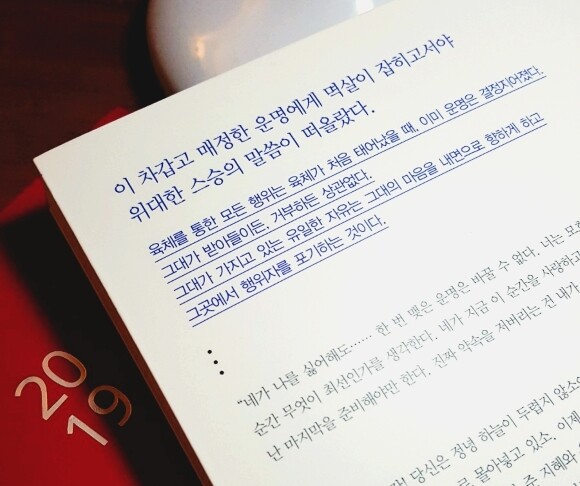 이 차갑고 매정한 운명에게 멱살이 잡히고서야
위대한 스승의 말씀이 떠올랐다.
육체를 통한 모든 행위는 육체가 처음 태어났을 때, 이미 운명은 결정지어졌다.
그대가 받아들이든, 거부하든 상관없다.
그대가 가지고 있는 유일한 자유는 그대의 마음을 내면으로 향하게 하고
그곳에서 행위자를 포기하는 것이다.
“네가 나를 싫어해도…… 한 번 맺은 운명은 바꿀 수 없다. 나는 모
순간 무엇이 최선인가를 생각한다. 네가 지금 이 순간을 사랑하고
난 마지막을 준비해야만 한다. 진짜 약속을 저버리는 건 내가
당신은 정녕 하늘이 두렵지 않소
로 몰아넣고 있소. 이제
준 지혜와
20
19